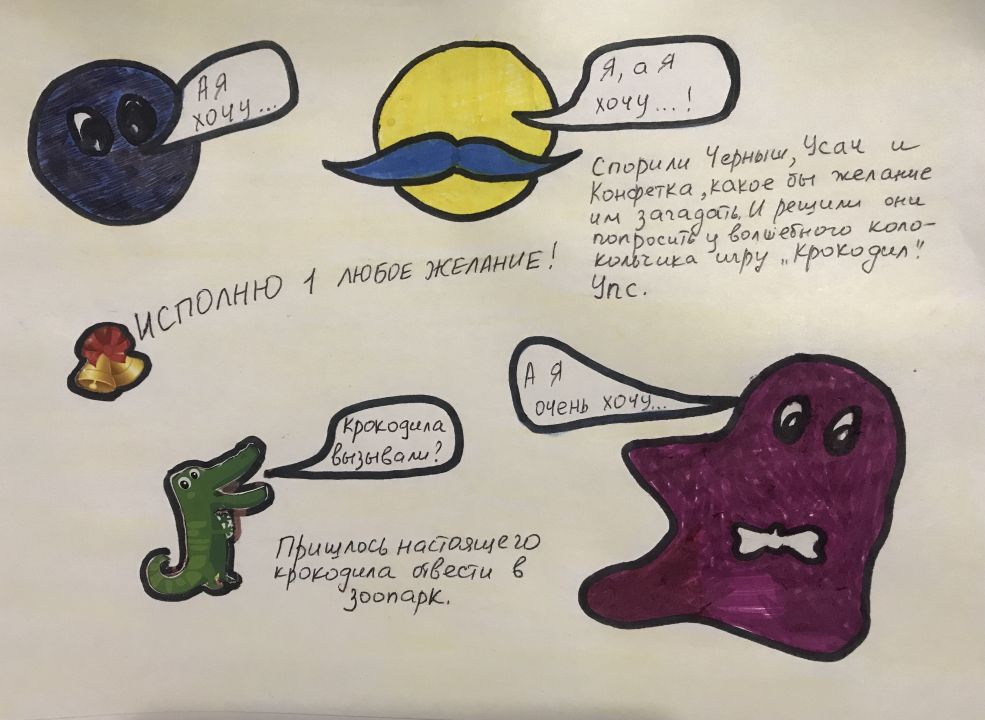 А Я
хочу...
Я, а Я
хочу...!
Спорили Черныш, Усач и
Конфетка, какое бы желание
им загадать. И решили они
попросить у волшебного коло-
кольчика игру „Крокодил".
Упс.
ИСПОЛНЮ 1 ЛЮБОЕ ЖЕЛАНИЕ!
А Я
очень хочу...
Крокодила
вызывали?
Пришлось настоящего
крокодила отвести в
зоопарк.